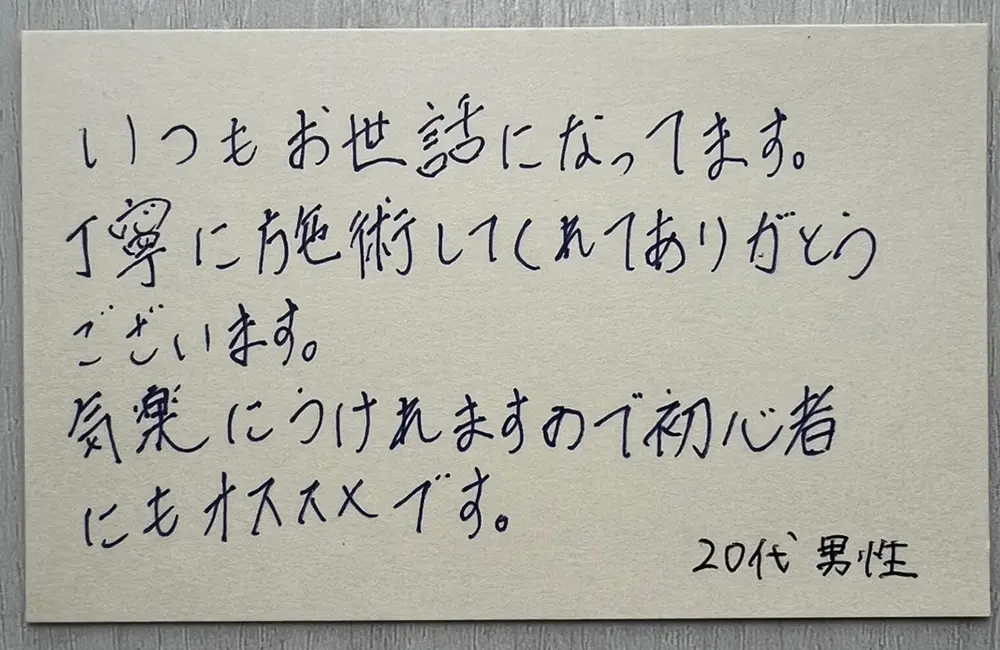 いつもお世話になってます。
丁寧に施術してくれてありがとう
ございます。
気楽にうけれますので初心者
にもオススメです。
20代 男性